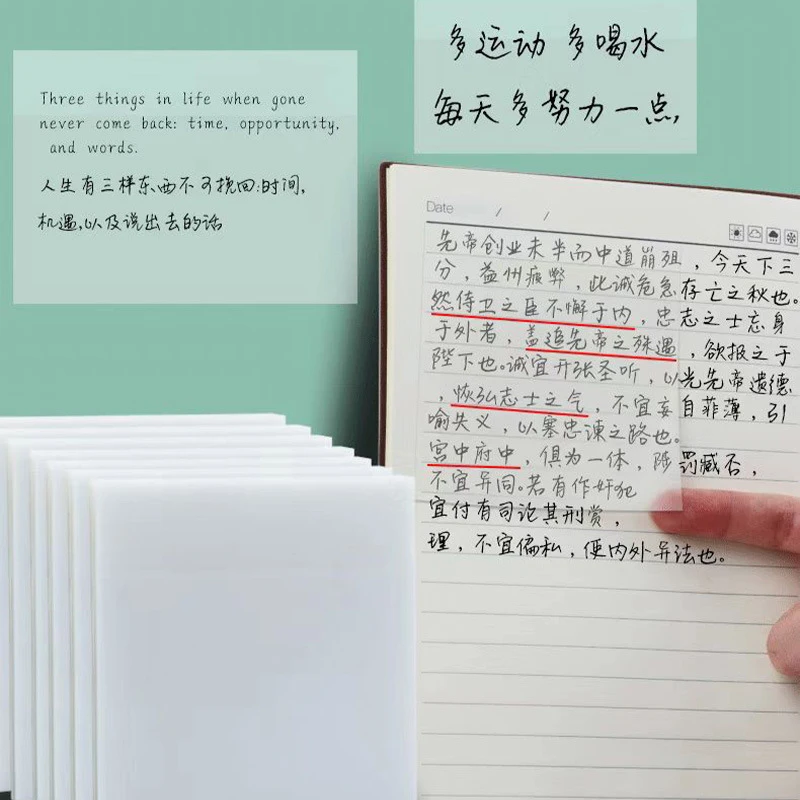 多运动 多喝水
每天多努力一点,
Three things in life when gone
never come back: time, opportunity,
and words.
人生有三样东西不可挽回:时间,
机遇,以及说出去的话
Date / /
先帝创业未半而中道崩殂，今天下三
分，益州疲弊，此诚危急存亡之秋也。
然侍卫之臣不懈于内，忠志之士忘身
于外者，盖追先帝之殊遇，欲报之于
陛下也。诚宜开张圣听，以光先帝遗德
，恢弘志士之气，不宜妄自菲薄，引
喻失义，以塞忠谏之路也。
宫中府中，俱为一体，陟罚臧否，
不宜异同。若有作奸犯
宜付有司论其刑赏，
理，不宜偏私，使内外异法也。